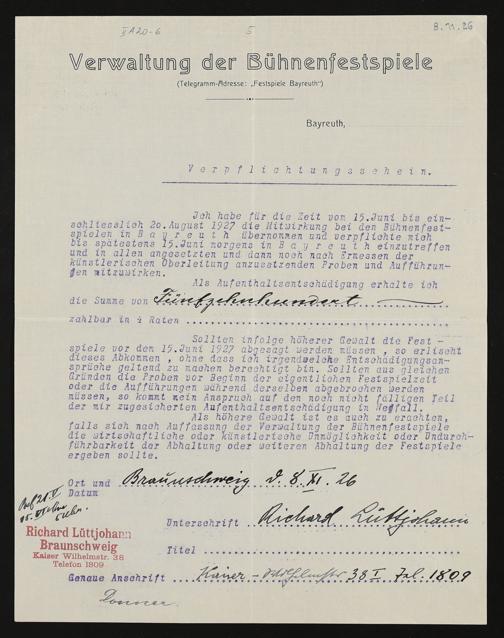 II A 20-6
5
8.11.26
Verwaltung der Bühnenfestspiele
(Telegramm-Adresse: „Festspiele Bayreuth")
Bayreuth,
Verpflichtungsschein.
Ich habe für die Zeit vom 15.Juni bis ein-
schliesslich 20.August 1927 die Mitwirkung bei den Bühnenfest-
spielen in Bayreuth übernommen und verpflichte mich
bis spätestens 15.Juni morgens in Bayreuth einzutreffen
und in allen angesetzten und dann noch nach Ermessen der
künstlerischen Oberleitung anzusetzenden Proben und Aufführun-
gen mitzuwirken.
Als Aufenthaltsentschädigung erhalte ich
die Summe von Fünfzehnhundert
zahlbar in 4 Raten
Sollten infolge höherer Gewalt die Fest -
spiele vor dem 15.Juni 1927 abgesagt werden müssen , so erlischt
dieses Abkommen , ohne dass ich irgendwelche Entschädigungsan-
sprüche geltend zu machen berechtigt bin. Sollten aus gleichen
Gründen die Proben vor Beginn der eigentlichen Festspielzeit
oder die Aufführungen während derselben abgebrochen werden
müssen, so kommt mein Anspruch auf den noch nicht fälligen Teil
der mir zugesicherten Aufenthaltsentschädigung in Wegfall.
Als höhere Gewalt ist es auch zu erachten,
falls sich nach Auffassung der Verwaltung der Bühnenfestspiele
die wirtschaftliche oder künstlerische Unmöglichkeit oder Undurch-
führbarkeit der Abhaltung oder weiteren Abhaltung der Festspiele
ergeben sollte.
Ort und Braunschweig d. 8. XI. 26
Datum
Unterschrift Richard Lüttjohann
Richard Lüttjohann
Braunschweig
Kaiser Wilhelmstr. 38
Telefon 1809
Titel
Genaue Anschrift Kaiser-Wilhelmstr 38 I Tel. 1809
Donner